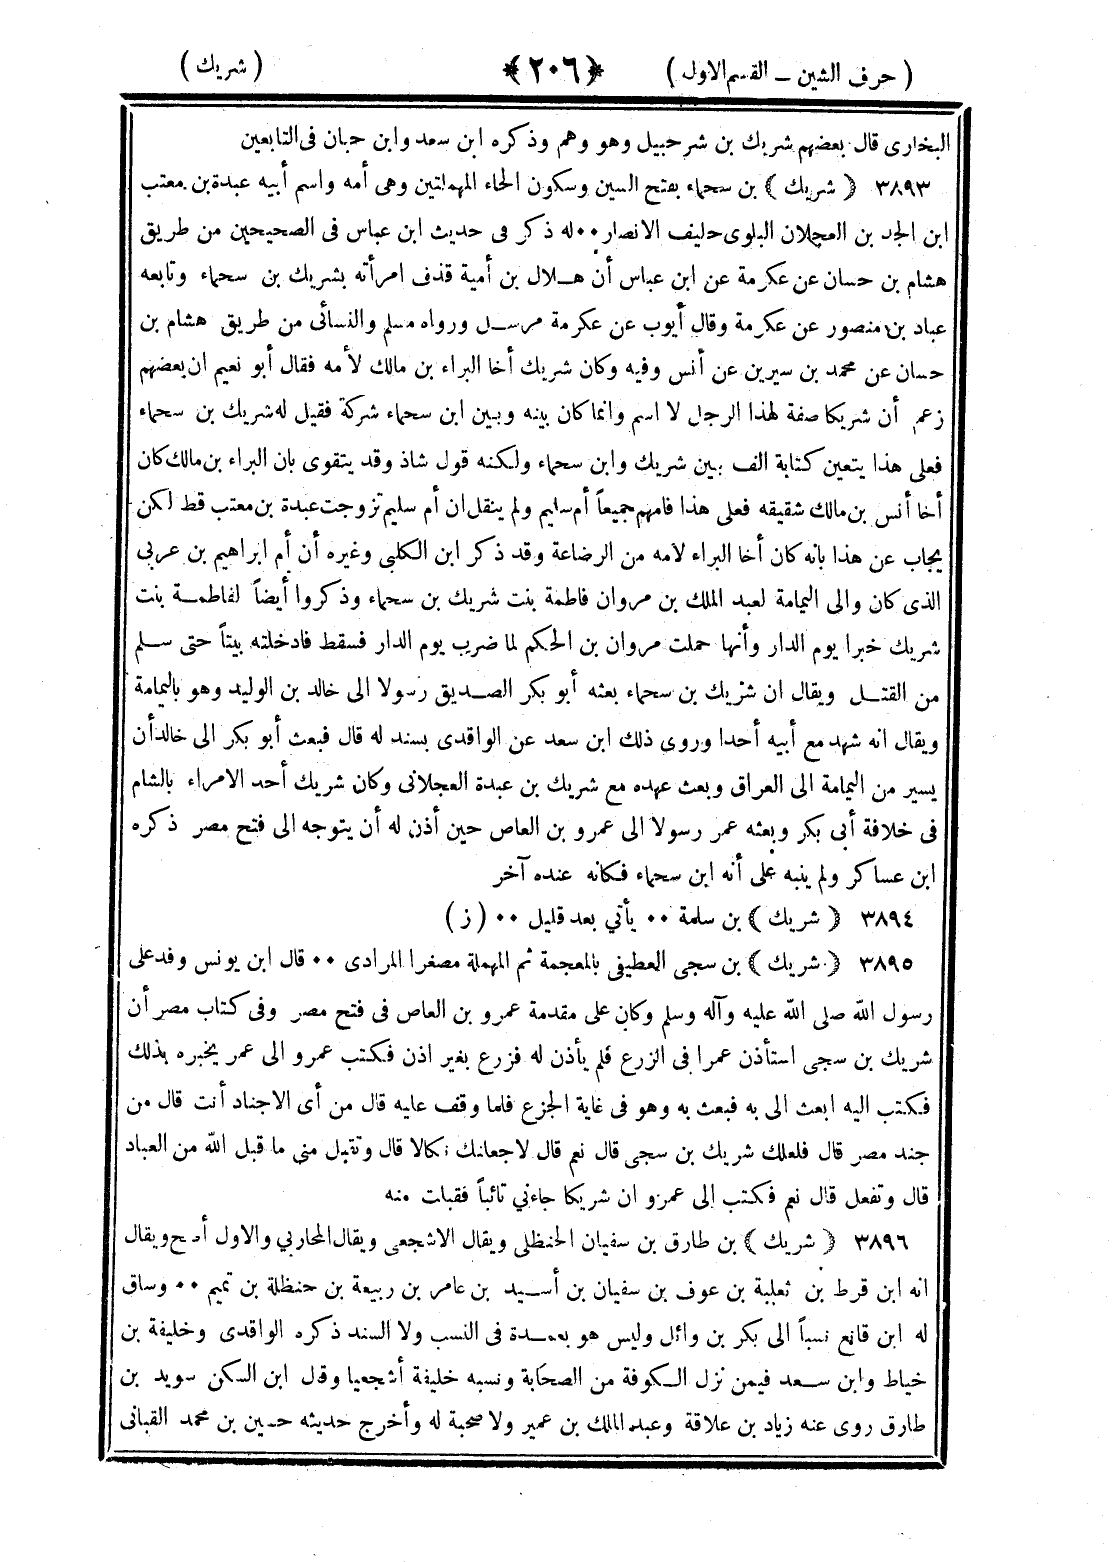 ( حرف الشين – القسم الاول ) ﴿ ٢٠٦ ﴾ ( شريك )
البخارى قال بعضهم شريك بن شرحبيل وهو وهم وذكره ابن سعد وابن حبان فى التابعين
٣٨٩٣ ﴿ شريك ﴾ بن سحماء بفتح السين وسكون الحاء المهملتين وهى أمه واسم أبيه عبدة بن معتب
ابن الجد بن العجلان البلوى حليف الانصار ۰۰ له ذكر فى حديث ابن عباس فى الصحيحين من طريق
هشام بن حسان عن عكرمة عن ابن عباس أن هلال بن أمية قذف امرأته بشريك بن سحماء وتابعه
عباد بن منصور عن عكرمة وقال أيوب عن عكرمة مرسل ورواه مسلم والنسائى من طريق هشام بن
حسان عن محمد بن سيرين عن أنس وفيه وكان شريك أخا البراء بن مالك لأمه فقال أبو نعيم ان بعضهم
زعم أن شريكا صفة لهذا الرجل لا اسم وانما كان بينه وبين ابن سحماء شركة فقيل له شريك بن سحماء
فعلى هذا يتعين كتابة الف بين شريك وابن سحماء ولكنه قول شاذ وقد يتقوى بان البراء بن مالك كان
أخا أنس بن مالك شقيقه فعلى هذا فامهم جميعاً أم سليم ولم ينقل ان أم سليم تزوجت عبدة بن معتب قط لكن
يجاب عن هذا بانه كان أخا البراء لامه من الرضاعة وقد ذكر ابن الكلبى وغيره أن أم ابراهيم بن عربى
الذى كان والى اليمامة لعبد الملك بن مروان فاطمة بنت شريك بن سحماء وذكروا أيضاً لفاطمة بنت
شريك خبرا يوم الدار وأنها حملت مروان بن الحكم لما ضرب يوم الدار فسقط فادخلته بيتاً حتى سلم
من القتل ويقال ان شريك بن سحماء بعثه أبو بكر الصديق رسولا الى خالد بن الوليد وهو باليمامة
ويقال انه شهد مع أبيه أحدا وروى ذلك ابن سعد عن الواقدى بسند له قال فبعث أبو بكر الى خالد أن
يسير من اليمامة الى العراق وبعث عهده مع شريك بن عبدة العجلانى وكان شريك أحد الامراء بالشام
فى خلافة أبى بكر وبعثه عمر رسولا الى عمرو بن العاص حين أذن له أن يتوجه الى فتح مصر ذكره
ابن عساكر ولم ينبه على أنه ابن سحماء فكانه عنده آخر
٣٨٩٤ ﴿ شريك ﴾ بن سلمة ۰۰ يأتي بعد قليل ۰۰ ( ز )
٣٨٩٥ ﴿ شريك ﴾ بن سجى العطيفى بالمعجمة ثم المهملة مصغرا المرادى ۰۰ قال ابن يونس وفد على
رسول الله صلى الله عليه وآله وسلم وكان على مقدمة عمرو بن العاص فى فتح مصر وفى كتاب مصر أن
شريك بن سجى استأذن عمرا فى الزرع فلم يأذن له فزرع بغير اذن فكتب عمرو الى عمر يخبره بذلك
فكتب اليه ابعث الى به فبعث به وهو فى غاية الجزع فلما وقف عليه قال من أى الاجناد أنت قال من
جند مصر قال فلعلك شريك بن سجى قال نعم قال لاجعلنك نكالا قال وتقبل منى ما قبل الله من العباد
قال وتفعل قال نعم فكتب الى عمرو ان شريكا جاءني تائباً فقبلت منه
٣٨٩٦ ﴿ شريك ﴾ بن طارق بن سفيان الحنظلى ويقال الاشجعى ويقال المحاربي والاول أصح ويقال
انه ابن قرط بن ثعلبة بن عوف بن سفيان بن أسيد بن عامر بن ربيعة بن حنظلة بن تميم ۰۰ وساق
له ابن قانع نسباً الى بكر بن وائل وليس هو بعمدة فى النسب ولا السند ذكره الواقدى وخليفة بن
خياط وابن سعد فيمن نزل الكوفة من الصحابة ونسبه خليفة أشجعيا وقال ابن السكن سويد بن
طارق روى عنه زياد بن علاقة وعبد الملك بن عمير ولا صحبة له وأخرج حديثه حسين بن محمد القبانى